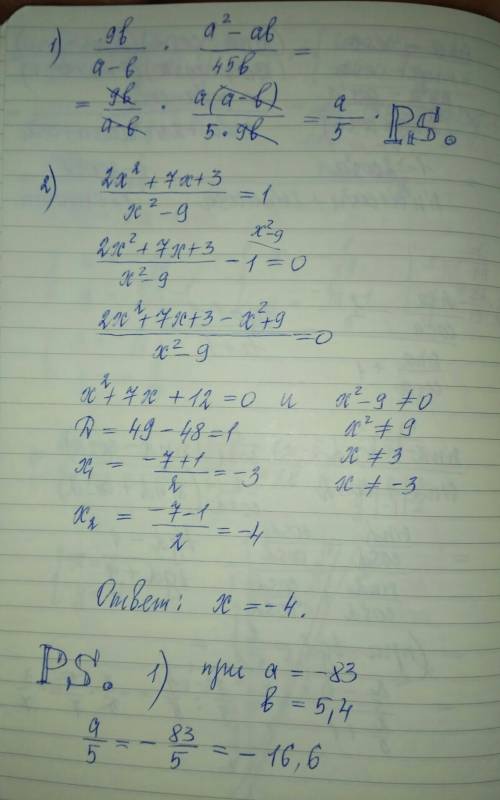 1) 9в/(a-в) · (a²-aв)/45в =
= 9в/(a-в) · a(a-в)/(5·9в) = a/5 . P.S.
2) (2x²+7x+3)/(x²-9) = 1
(2x²+7x+3)/(x²-9) - 1 = 0 x²-9
(2x²+7x+3-x²+9)/(x²-9) = 0
x²+7x+12=0 и x²-9≠0
D = 49-48=1 x²≠9
x₁ = (-7+1)/2 = -3 x≠3
x≠-3
x₂ = (-7-1)/2 = -4
Ответ: x=-4.
P.S. 1) при a = -83
в = 5,4
a/5 = -83/5 = -16,6